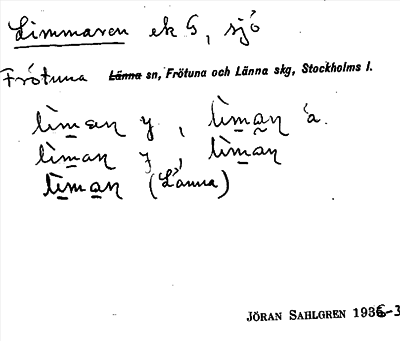 Limmaren ek G, sjö
Frötuna Länna sn, Frötuna och Länna skg, Stockholms l.
lìmaɳ y, lìmaɳ à.
lìmaɳ y, lìmãɳ
lìmaɳ (Länna)
JÖRAN SAHLGREN 1936-3